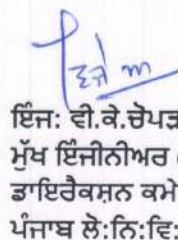 ਇੰਜ: ਵੀ.ਕੇ.ਚੋਪੜ
ਮੁੱਖ ਇੰਜੀਨੀਅਰ
ਡਾਇਰੈਕਸ਼ਨ ਕਮੇ
ਪੰਜਾਬ ਲੋ:ਨਿ:ਵਿ: